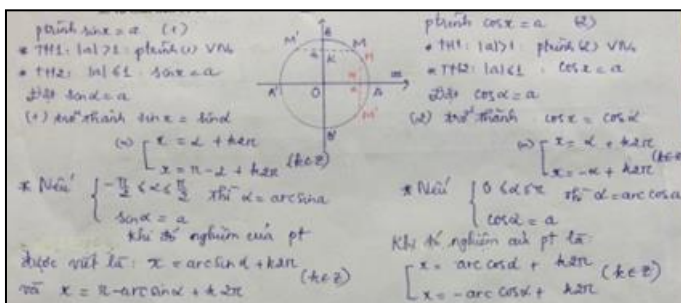 ptrình sinx = a (1)
* TH1: |a| > 1: ptrình (1) VN
* TH2: |a| ≤ 1: sinx = a
Đặt sinα = a
(1) trở thành sinx = sinα
(=) [ x = α + k2π
x = π - α + k2π (k∈Z)
* Nếu { -π/2 ≤ α ≤ π/2 thì α = arcsina
sinα = a
Khi đó nghiệm của pt
được viết là: x = arcsinα + k2π
và x = π - arcsinα + k2π (k∈Z)
B
M'
M
K
A'
O
A
B'
M
M'
ptrình cosx = a (2)
* TH1: |a| > 1 ptrình (2) VN
* TH2: |a| ≤ 1: cosx = a
Đặt cosα = a
(2) trở thành cosx = cosα
(=) [ x = α + k2π
x = -α + k2π (k∈Z)
* Nếu { 0 ≤ α ≤ π thì α = arccosa
cosα = a
Khi đó nghiệm của pt là:
[ x = arccosα + k2π
x = -arccosα + k2π (k∈Z)